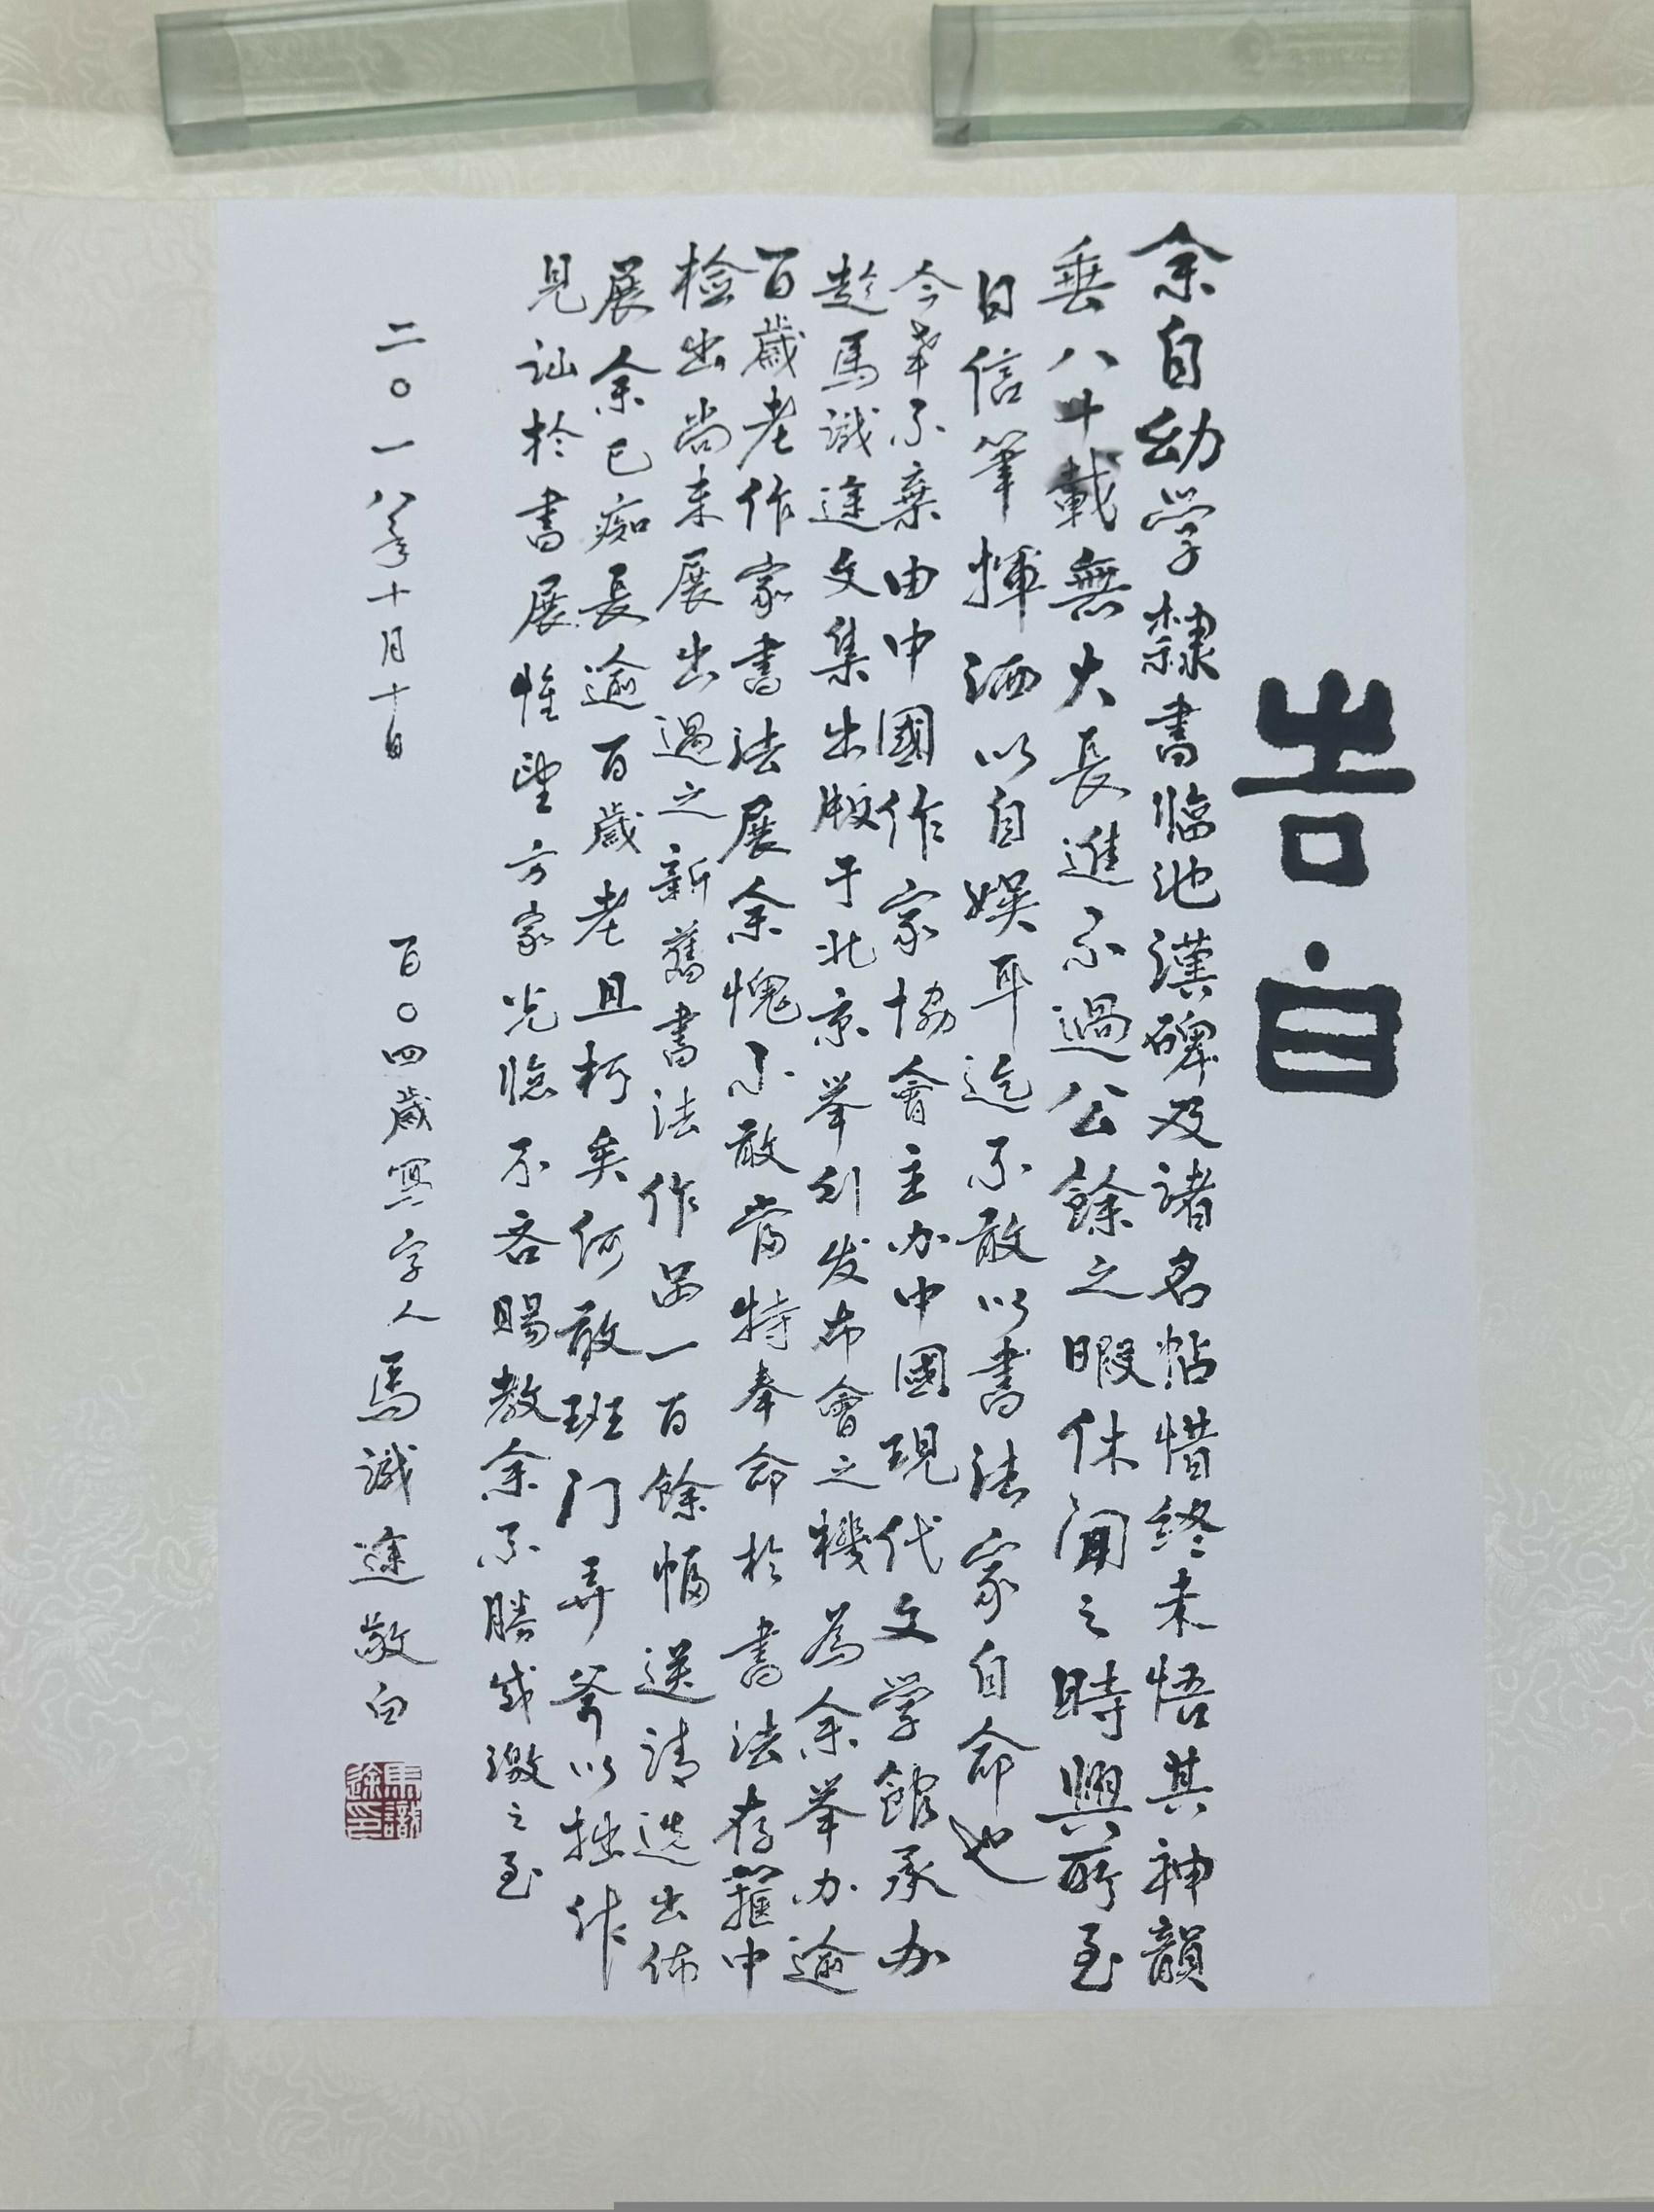 告白
余自幼学隸書臨池漢碑及諸名帖惜終未悟其神韻
垂八十載無大長進不過公餘之暇休闲之時興所至
日信筆揮洒以自娱耳迄不敢以書法家自命也
今幸不棄由中國作家協會主办中國現代文学館承办
趁馬識途文集出版于北京举引发布會之機為余举办逾
百歲老作家書法展余愧不敢當特奉命於書法存箧中
检出尚未展出過之新舊書法作品一百餘幅送請选出佈
展余已痴長逾百歲老且朽矣何敢班门弄斧以拙作
見訕於書展惟望方家光臨不吝賜教余不勝感激之至
二〇一八年十月十日
百〇四歲寫字人馬識途敬白
馬識途印